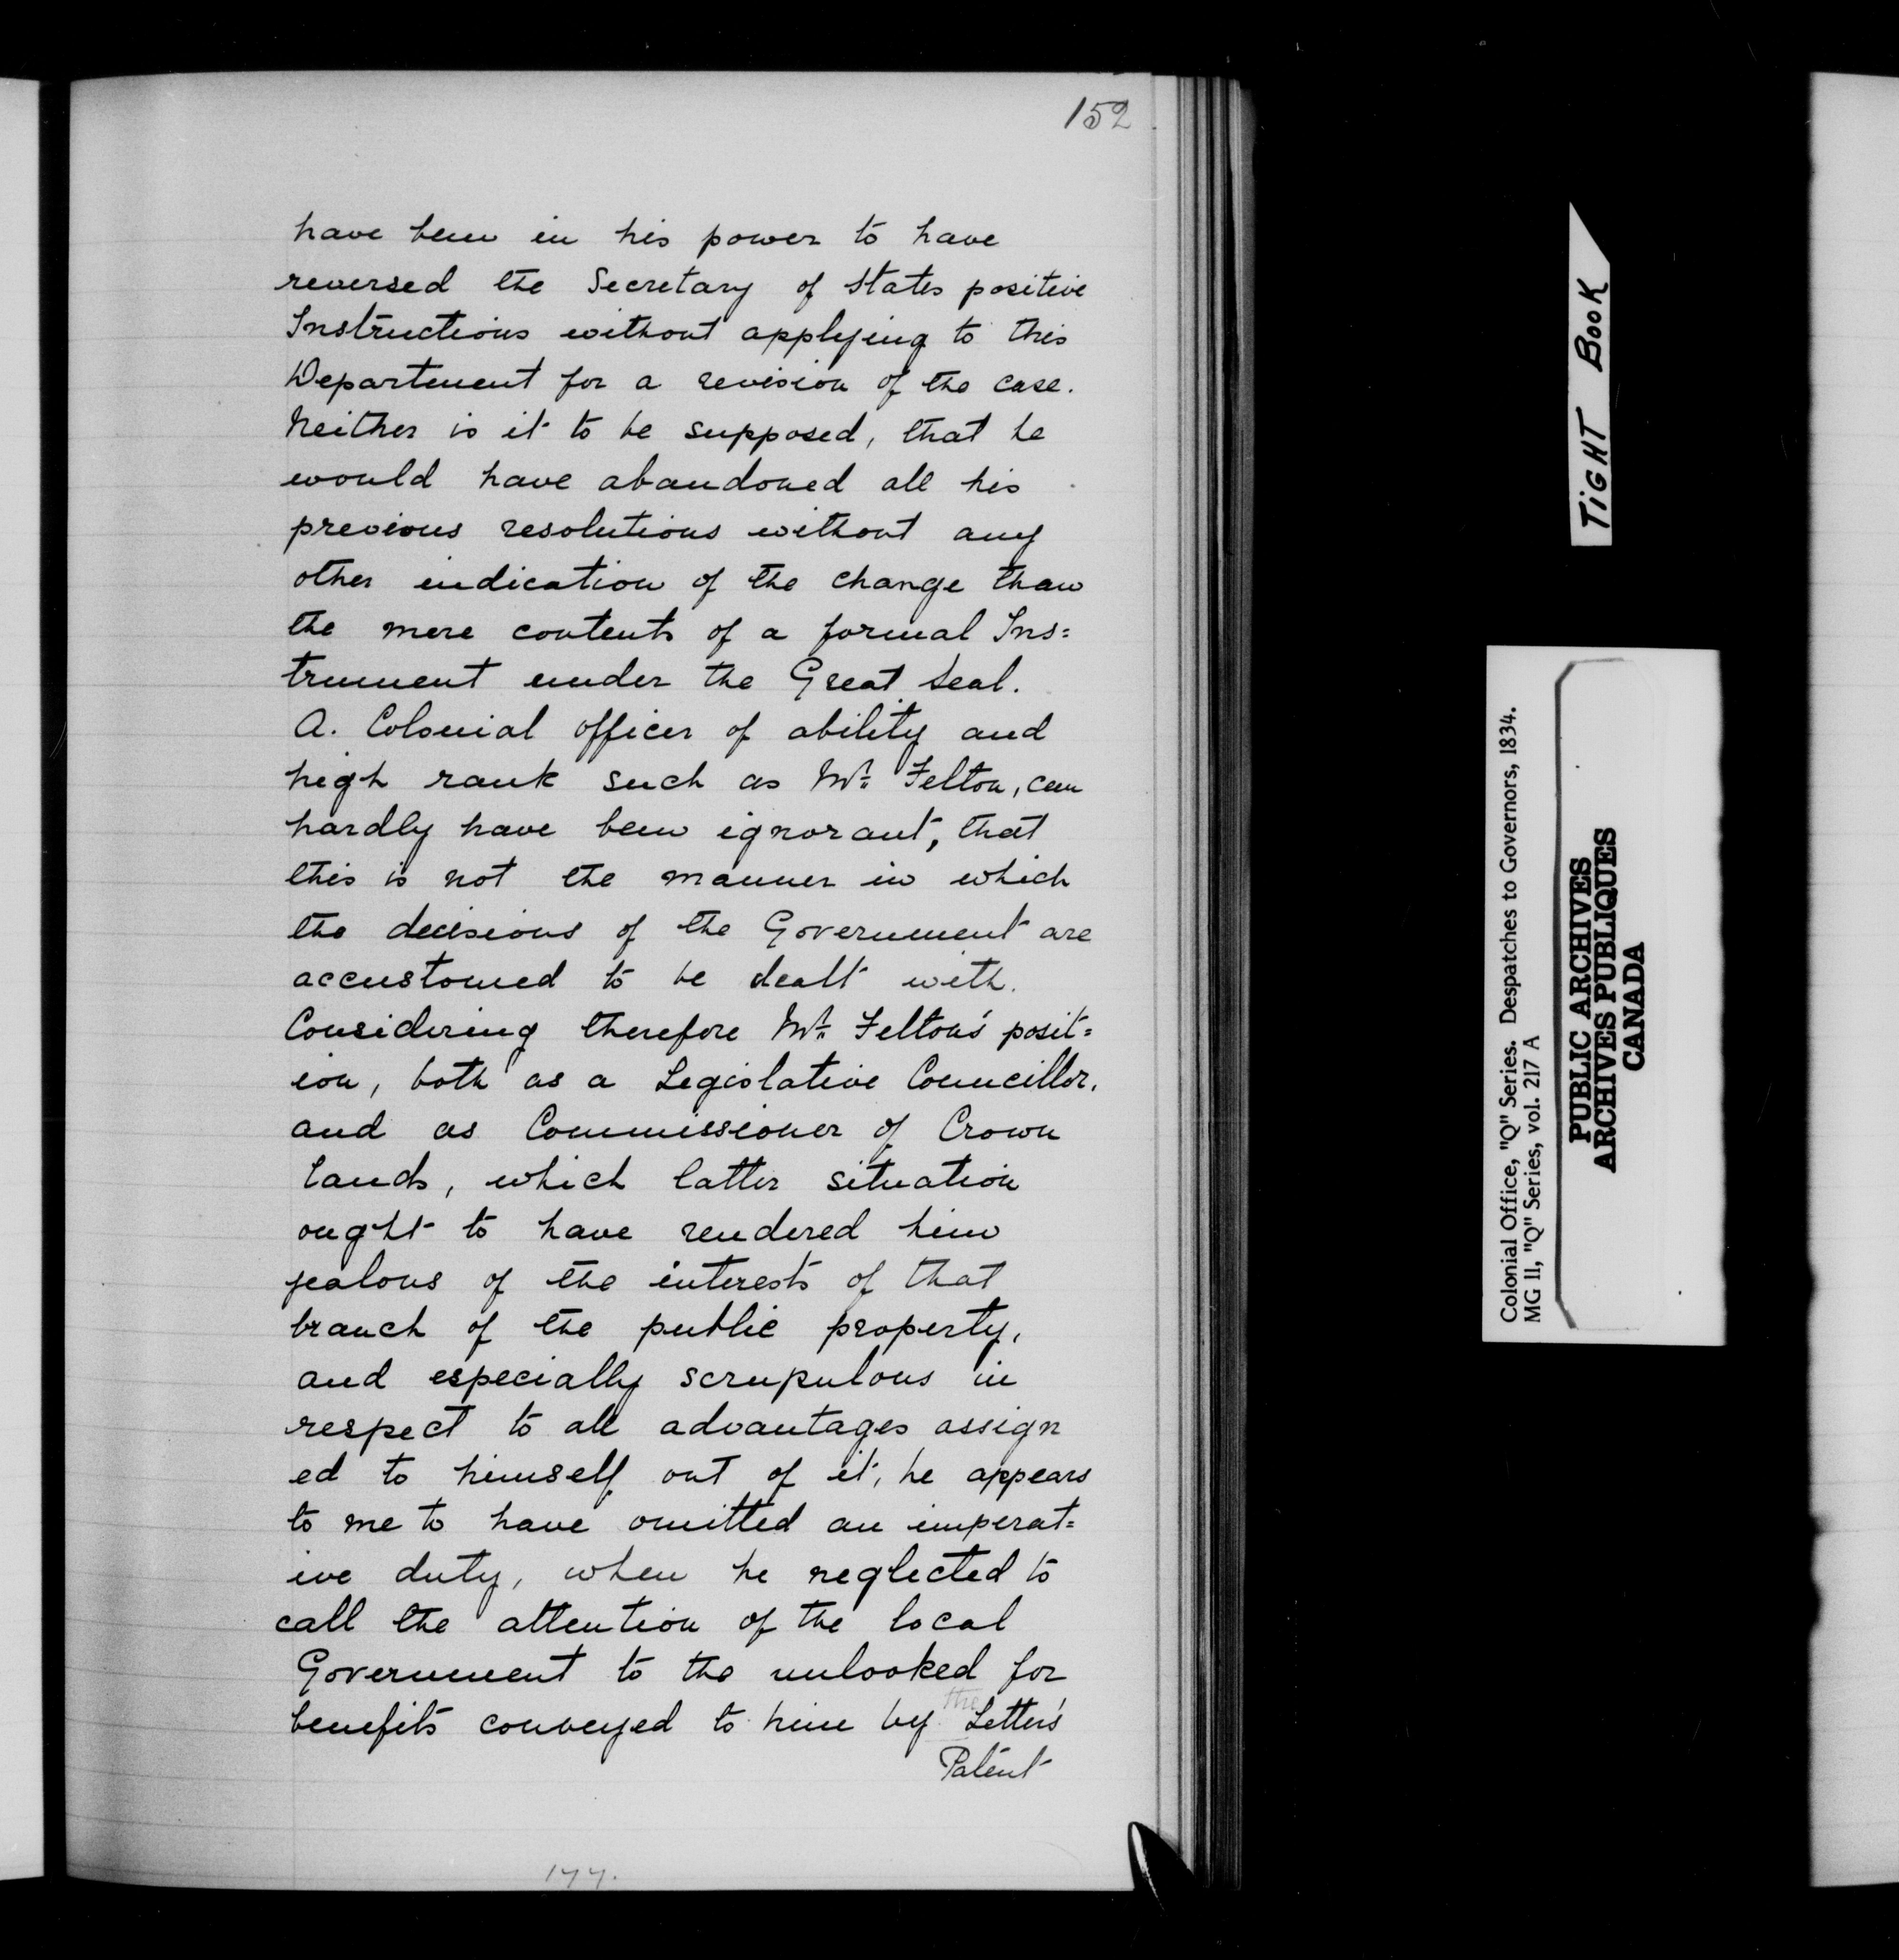 152
have been in his power to have
reversed the Secretary of States positive
Instructions without applying to this
Department for a revision of the case.
Neither is it to be supposed, that he
would have abandoned all his
previous resolutions without any
other indication of the change than
the mere contents of a formal Ins=
trument under the Great Seal.
A. Colonial officer of ability and
high rank such as Mr. Felton, can
hardly have been ignorant, that
this is not the manner in which
the decisions of the Government are
accustomed to be dealt with.
Considering therefore Mr. Felton's posit=
ion, both as a Legislative Councillor,
and as Commissioner of Crown
lands, which latter situation
ought to have rendered him
jealous of the interests of that
branch of the public property,
and especially scrupulous in
respect to all advantages assign
ed to himself out of it, he appears
to me to have omitted an imperat=
ive duty, when he neglected to
call the attention of the local
Government to the unlooked for
benefits conveyed to him by the Letters
Patent
177.
TIGHT BOOK
Colonial Office, "Q" Series. Despatches to Governors, 1834.
MG 11, "Q" Series, vol. 217 A
PUBLIC ARCHIVES
ARCHIVES PUBLIQUES
CANADA